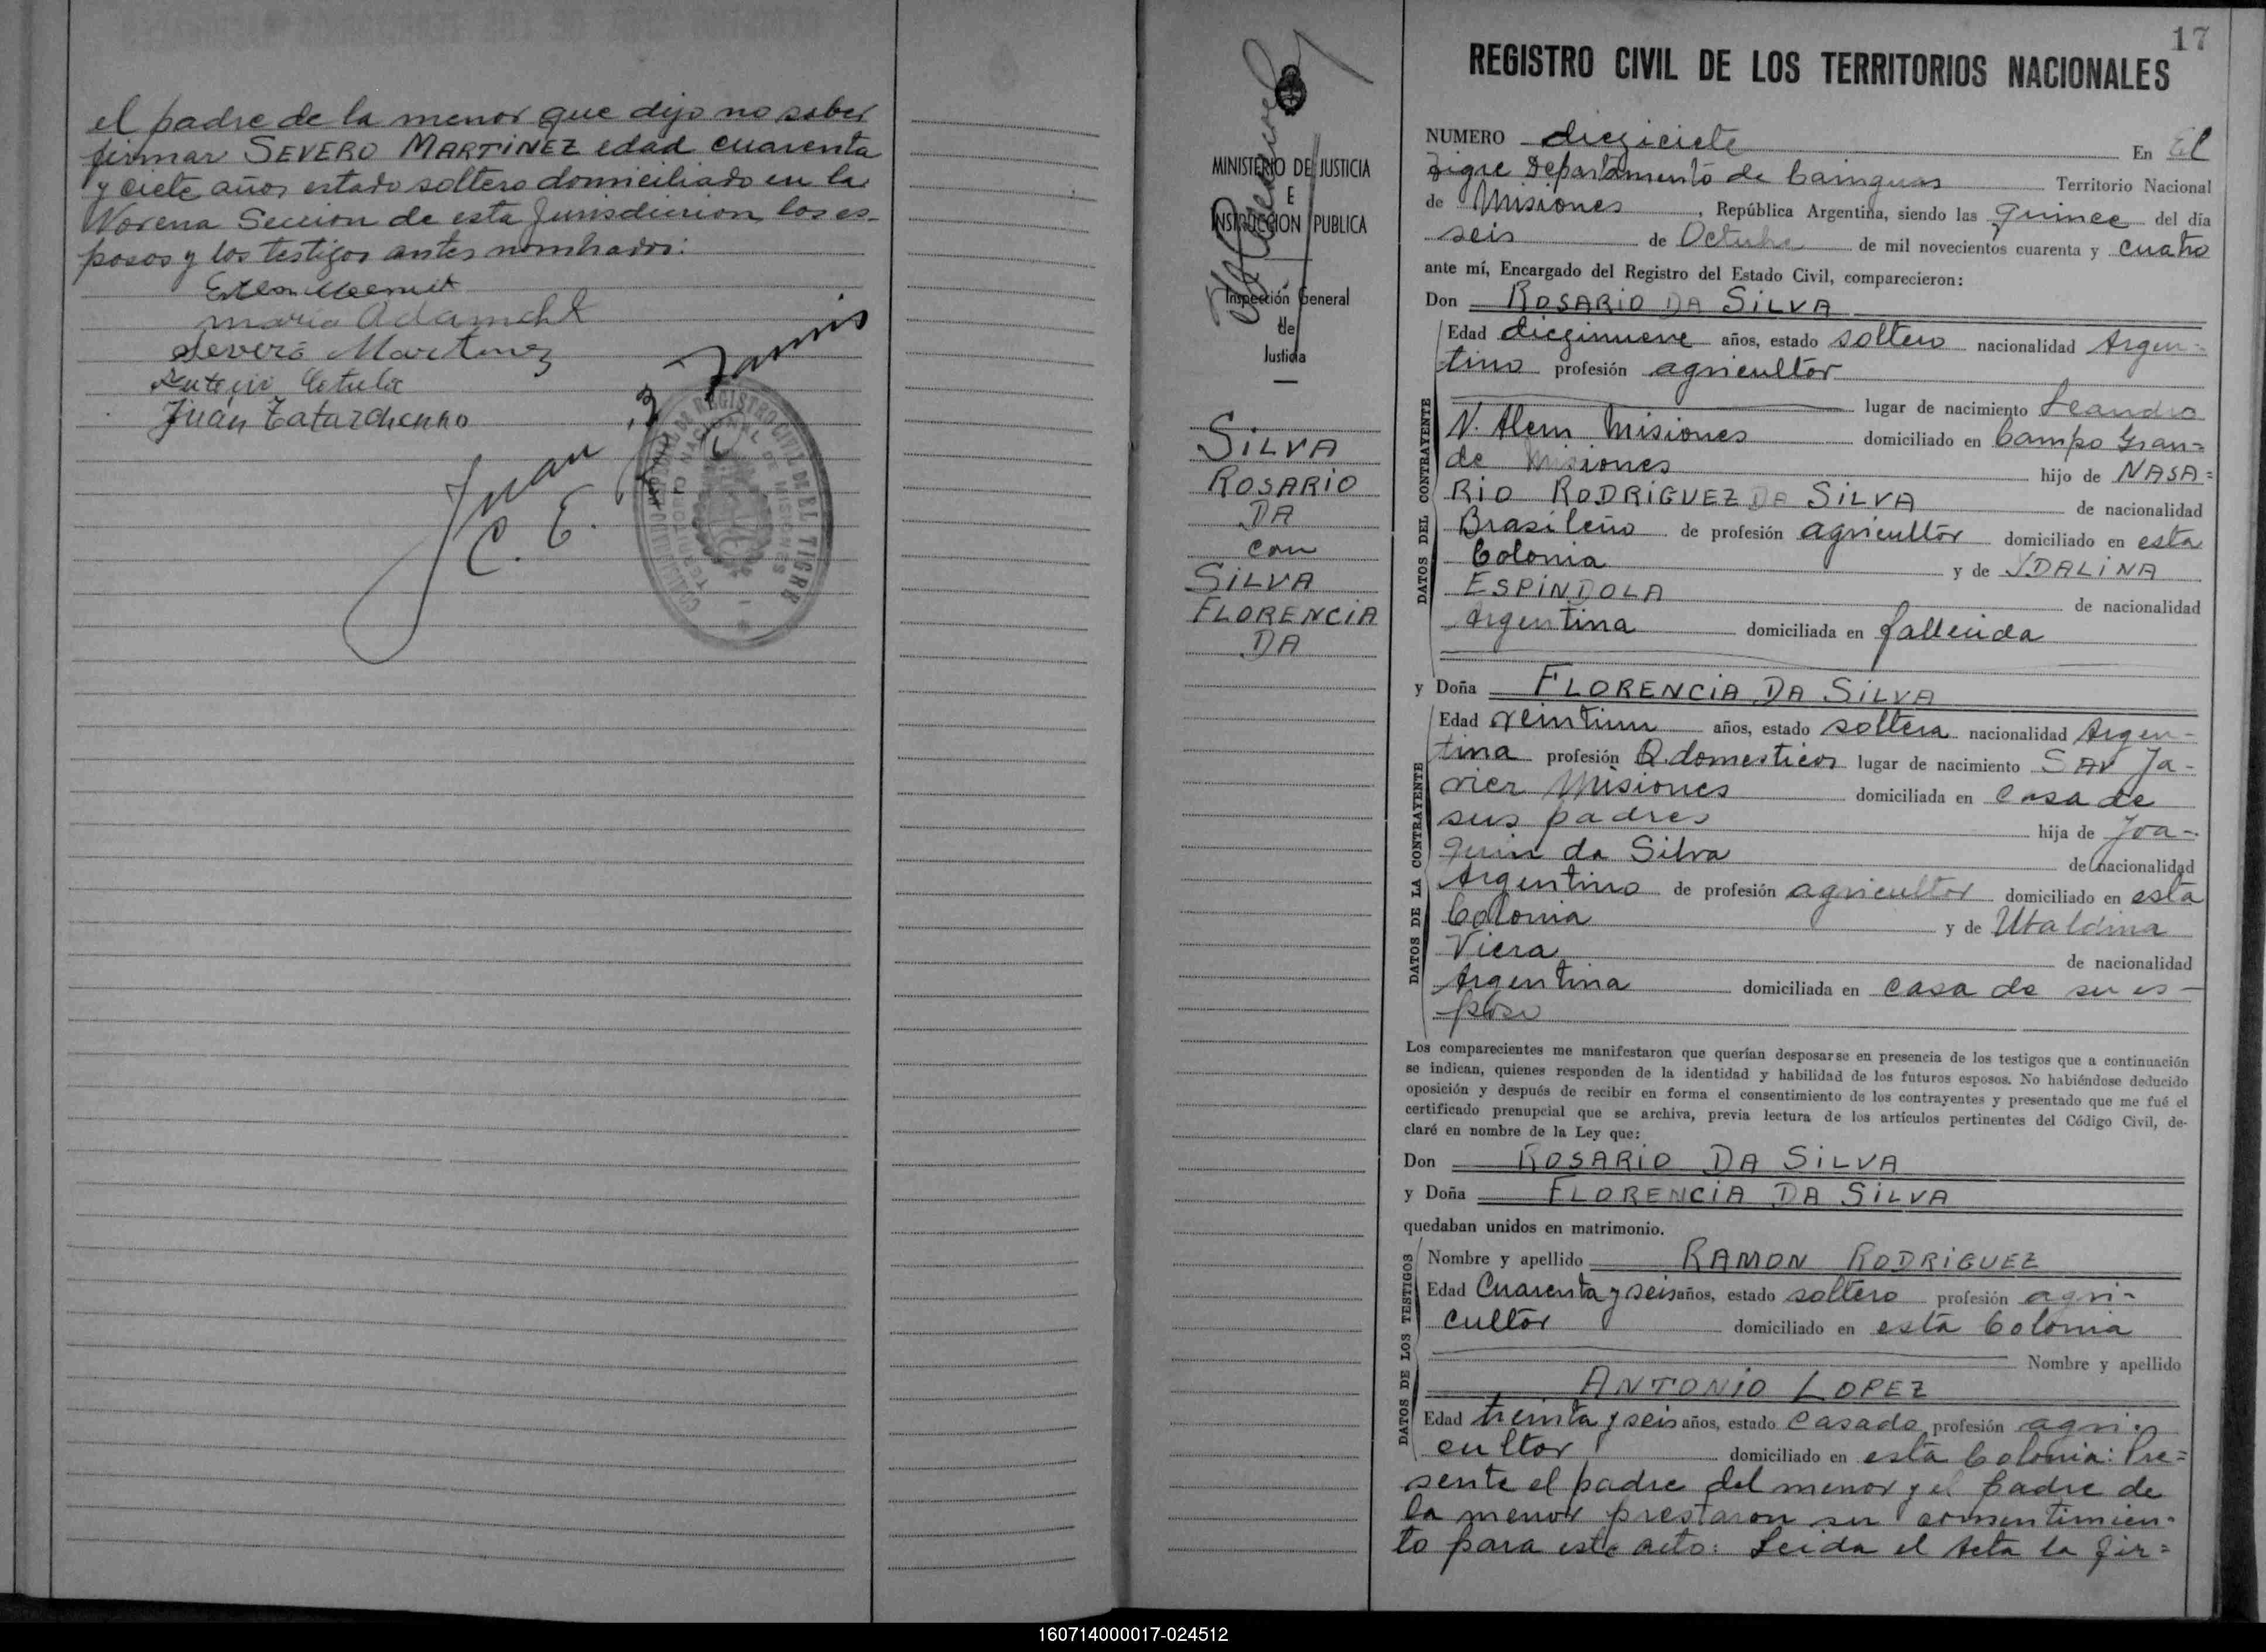 el padre de la menor que dijo no saber
firmar SEVERO MARTINEZ edad cuarenta
y ciete años estado soltero domiciliado en la
Novena Seccion de esta Jurisdiccion, los es-
posos y los testigos antes nombrados:
maria Adamchk
Severo Martinez
Juan Tatarchenko
Juan
C. E.
REGISTRO CIVIL DE EL TIGRE
MISIONES
17
MINISTERIO DE JUSTICIA
E
INSTRUCCION PUBLICA
Inspección General
de
Justicia
SILVA
ROSARIO
DA
con
SILVA
FLORENCIA
DA
REGISTRO CIVIL DE LOS TERRITORIOS NACIONALES
NUMERO dieziciete En El
Tigre Departamento de Cainguas Territorio Nacional
de Misiones, República Argentina, siendo las quince del día
seis de Octubre de mil novecientos cuarenta y cuatro
ante mí, Encargado del Registro del Estado Civil, comparecieron:
Don ROSARIO DA SILVA
DATOS DEL CONTRAYENTE
Edad diezinueve años, estado soltero nacionalidad Argen-
tino profesión agricultor
lugar de nacimiento Leandro
N. Alem Misiones domiciliado en Campo Gran=
de Misiones hijo de NASA=
RIO RODRIGUEZ DA SILVA de nacionalidad
Brasileño de profesión agricultor domiciliado en esta
Colonia y de YDALINA
ESPINDOLA de nacionalidad
Argentina domiciliada en fallecida
y Doña FLORENCIA DA SILVA
DATOS DE LA CONTRAYENTE
Edad veintiun años, estado soltera nacionalidad Argen-
tina profesión Q. domesticos lugar de nacimiento SAN Ja-
vier Misiones domiciliada en casa de
sus padres hija de Joa-
quin da Silva de nacionalidad
Argentino de profesión agricultor domiciliado en esta
Colonia y de Ubaldina
Viera de nacionalidad
Argentina domiciliada en casa de su es-
poso
Los comparecientes me manifestaron que querían desposarse en presencia de los testigos que a continuación
se indican, quienes responden de la identidad y habilidad de los futuros esposos. No habiéndose deducido
oposición y después de recibir en forma el consentimiento de los contrayentes y presentado que me fué el
certificado prenupcial que se archiva, previa lectura de los artículos pertinentes del Código Civil, de-
claré en nombre de la Ley que:
Don ROSARIO DA SILVA
y Doña FLORENCIA DA SILVA
quedaban unidos en matrimonio.
DATOS DE LOS TESTIGOS
Nombre y apellido RAMON RODRIGUEZ
Edad Cuarenta y seis años, estado soltero profesión agri-
cultor domiciliado en esta Colonia
Nombre y apellido
ANTONIO LOPEZ
Edad treinta y seis años, estado casado profesión agri-
cultor domiciliado en esta Colonia: Pre=
sente el padre del menor y el padre de
la menor prestaron su consentimien-
to para este acto: Leida el Acta la fir=
160714000017-024512